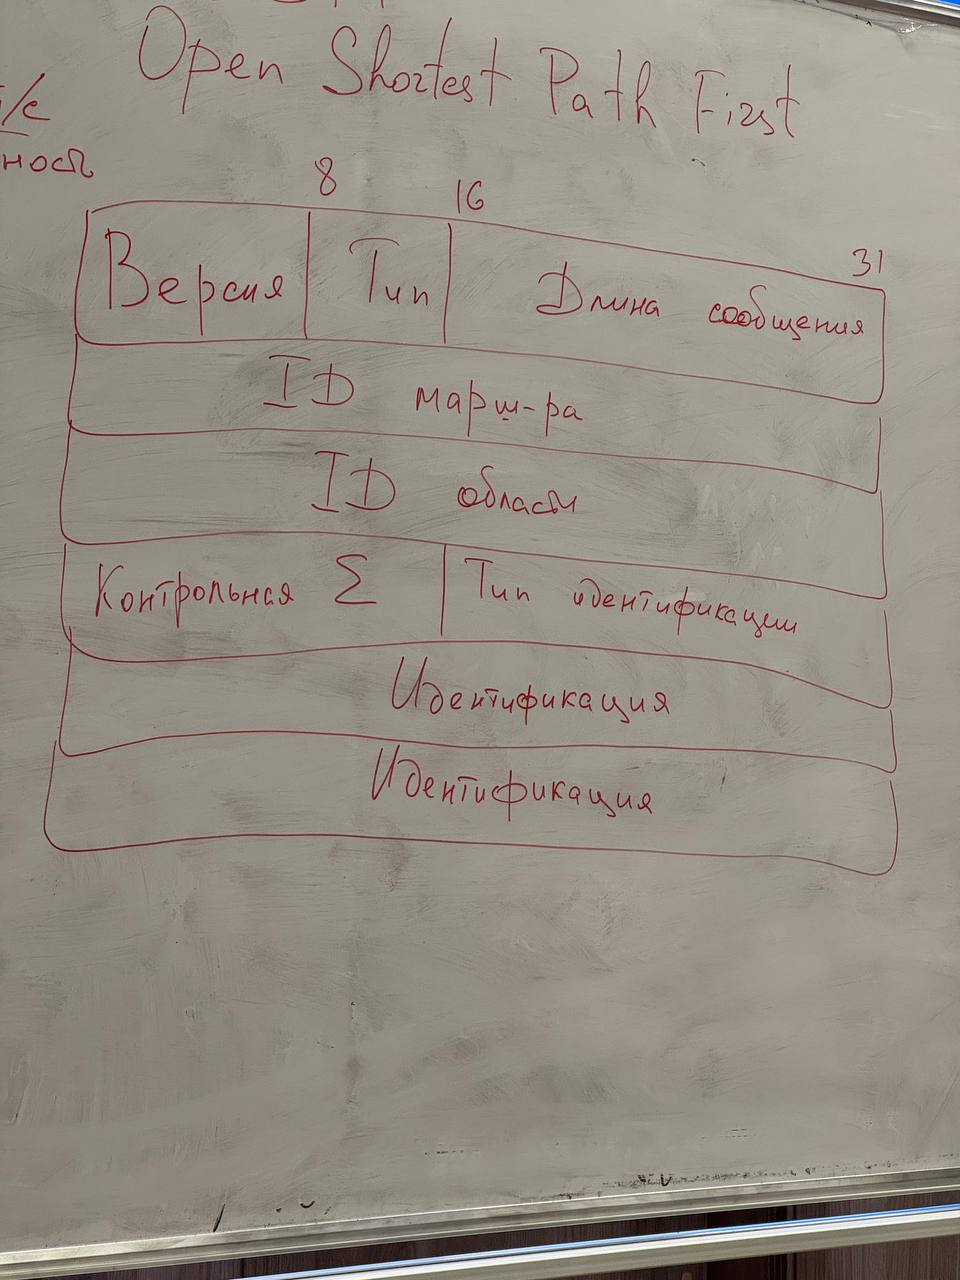 Open Shortest Path First
/с
ность
8 16 31
Версия Тип Длина сообщения
ID марш-ра
ID области
Контрольная Σ Тип идентификации
Идентификация
Идентификация